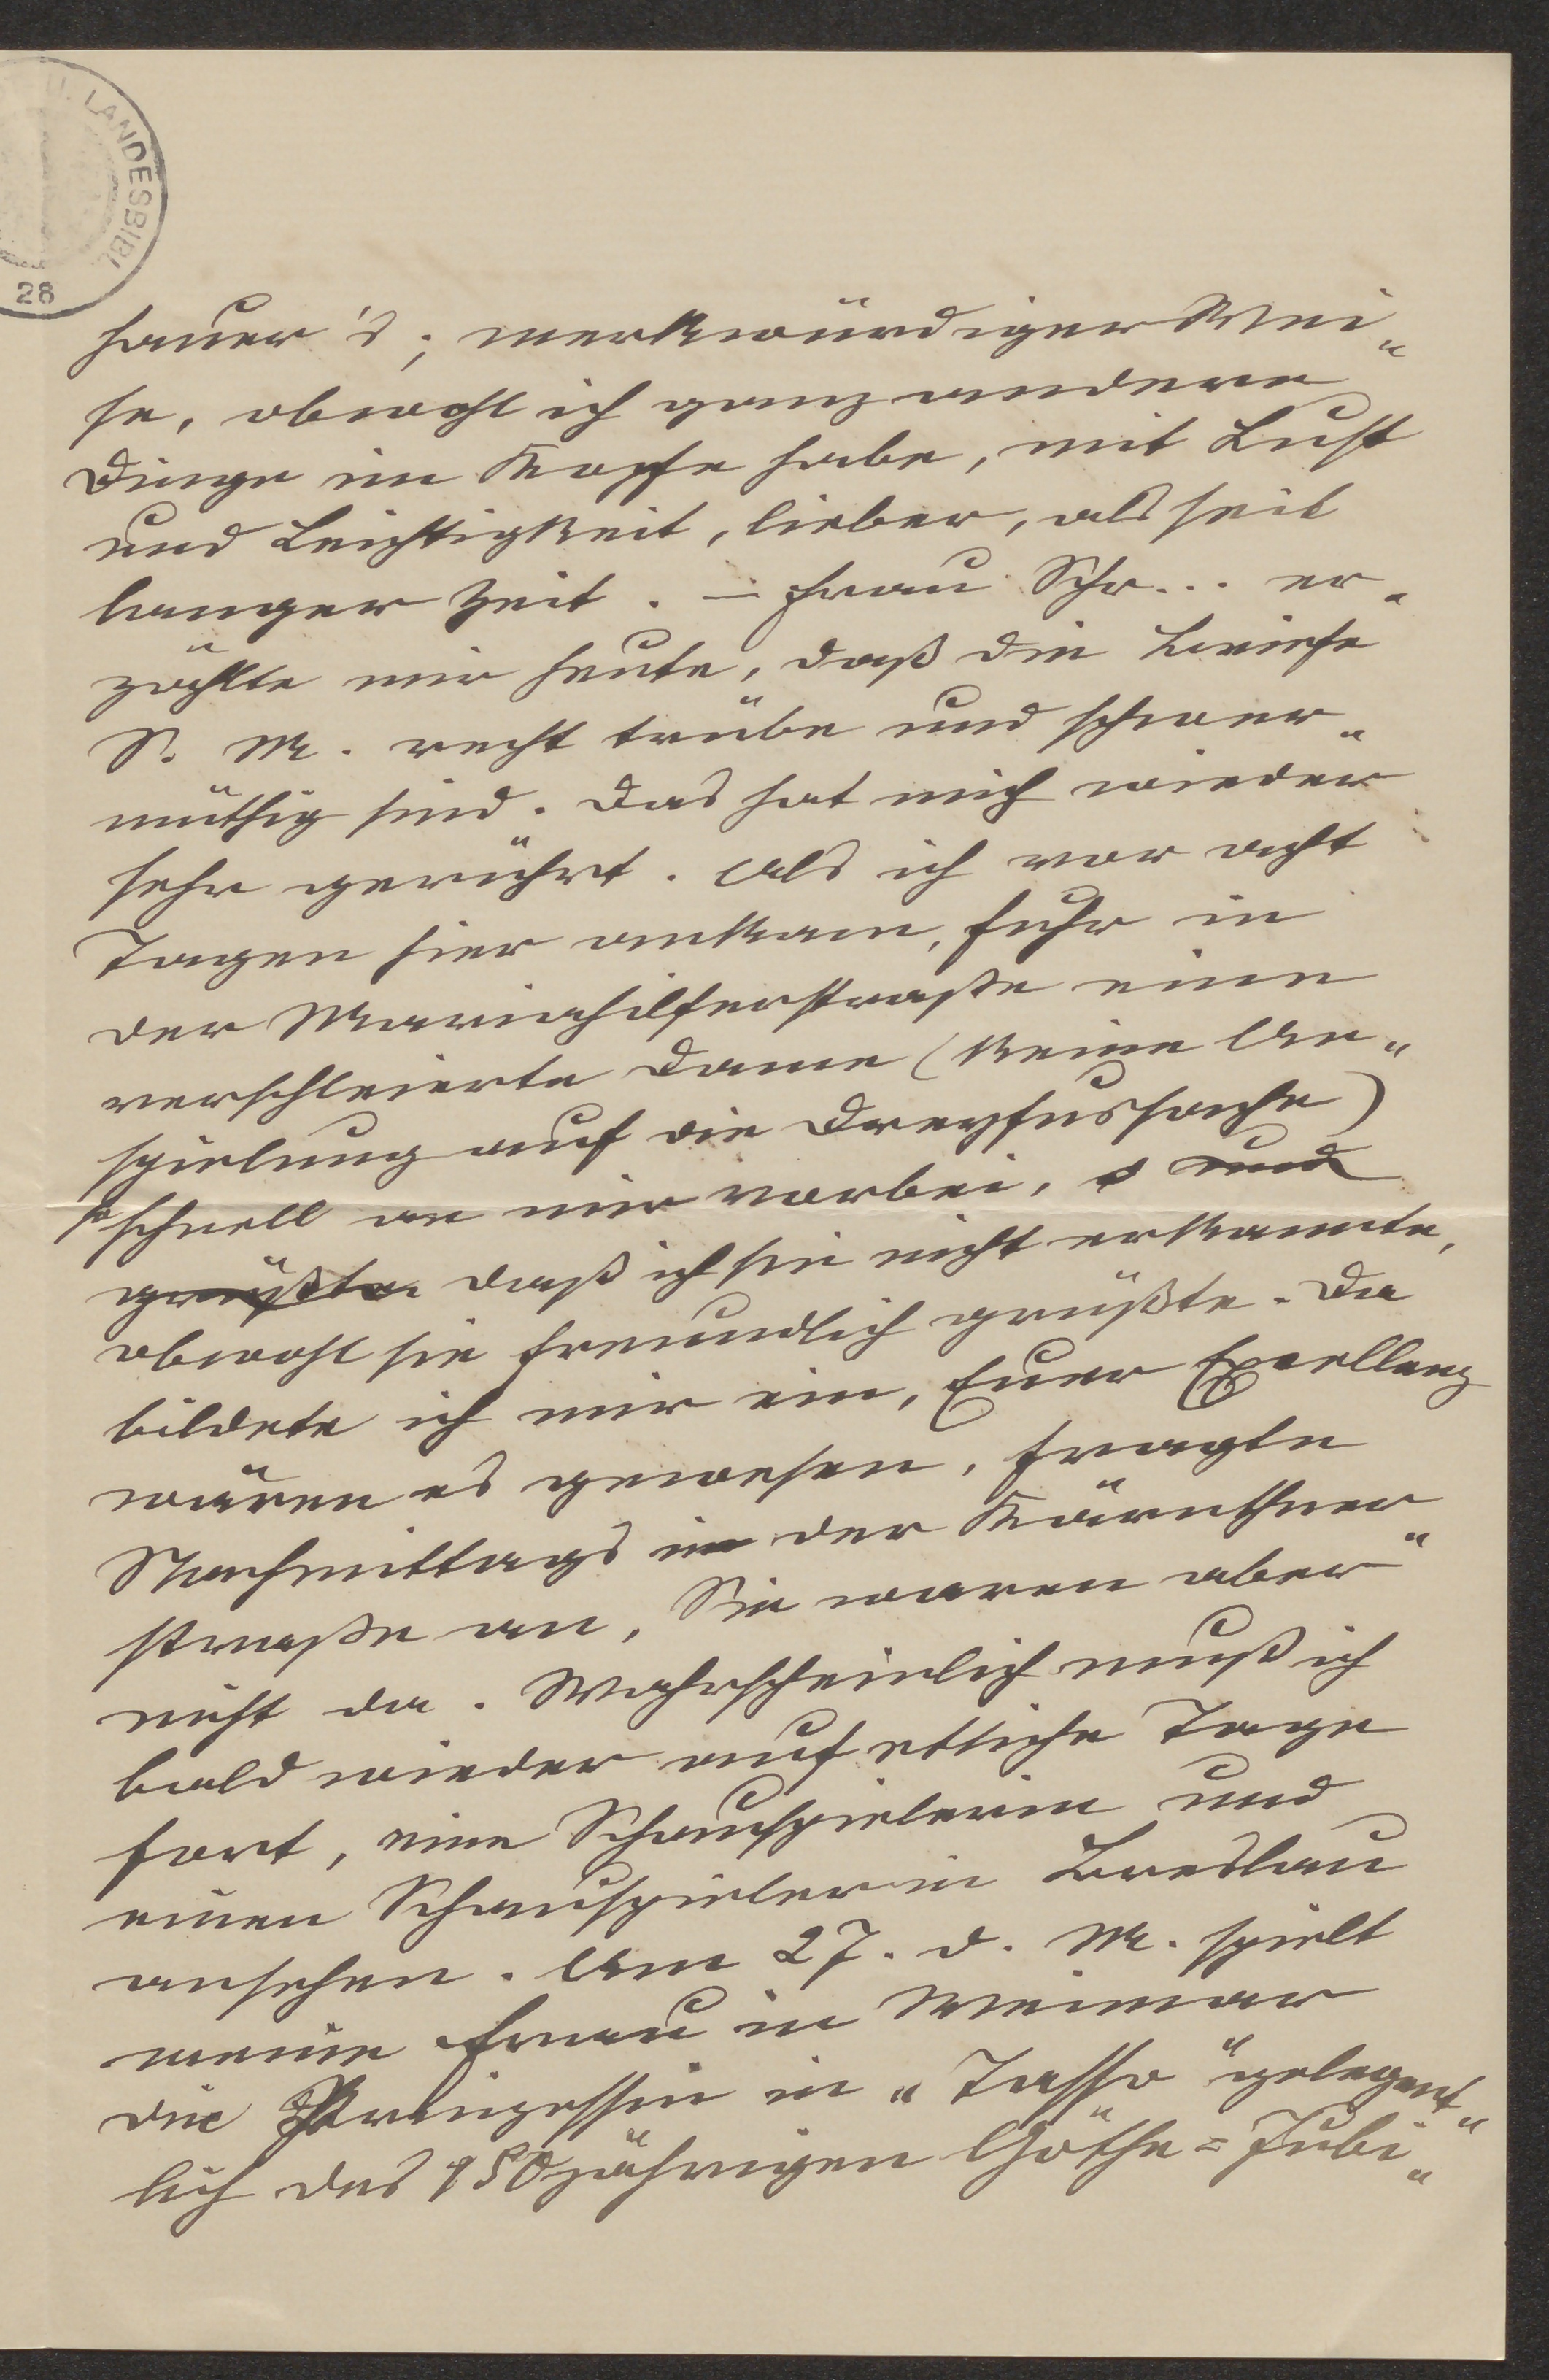 U. LANDESBIBL.
28
hauer's; merkwürdiger Wei„
se, obwohl ich ganz andere
Dinge im Kopfe habe, mit Lust
und Leichtigkeit, lieber, als seit
langer Zeit. – Frau Schr... er„
zählte mir heute, daß die Briefe
S. M. recht trübe und schwer„
müthig sind. Das hat mich wieder
sehr gerührt. Als ich vor acht
Tagen hier ankam, fuhr in
der Mariahilferstraße eine
verschleierte Dame (keine An„
spielung auf die Dreyfussache)
so schnell an mir vorbei, s und
grüßte daß ich sie nicht erkannte,
obwohl sie freundlich grüßte. Da
bildete ich mir ein, Euer Excellenz
wären es gewesen, fragte
Nachmittags in der Kärnthner„
straße an, Sie waren aber
nicht da. Wahrscheinlich muß ich
bald wieder auf etliche Tage
fort, eine Schauspielerin und
einen Schauspieler in Breslau
ansehen. Am 27. d. M. spielt
meine Frau in Weimar
die Prinzessin in „Tasso" gelegent„
lich des 150jährigen Göthe=Jubi„